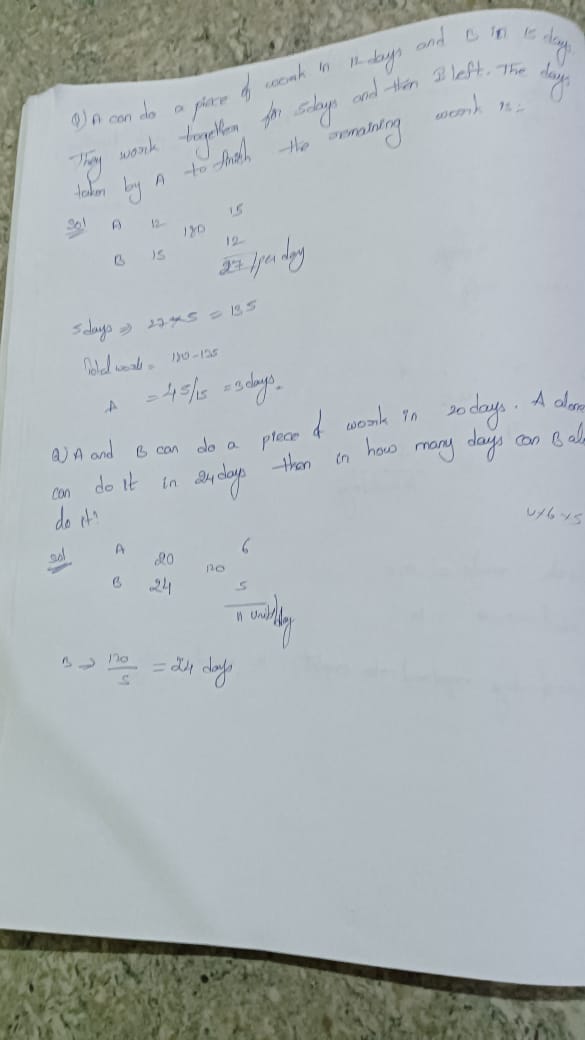 Q) A can do a piece of work in 12 days and B in 15 days
They work together for 5days and then B left. The days
taken by A to finish the remaining work is:-
Sol A 12 180 15
B 15 12
27/per day
5days ⇒ 27×5 = 135
Total work = 180-135
A = 45/15 = 3days.
Q) A and B can do a piece of work in 20 days. A alone
can do it in 24 days then in how many days can B al
do it?
4×6×5
Sol A 20 120 6
B 24 5
11 units/day
B ⇒ 120/5 = 24 days